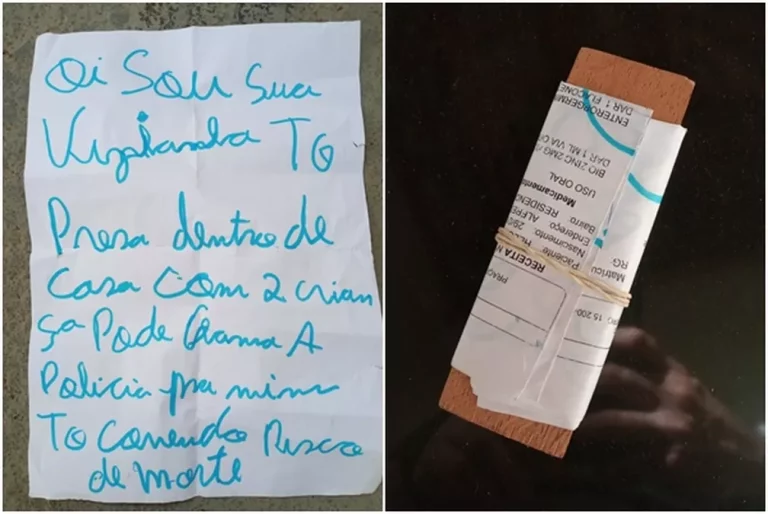 Oi Sou Sua
TO
Presa dentro de
Casa Com 2 crian
ça Pode Chama A
Policia pra mim
To Correndo Risco
de morte
RECEITA M
Paciente:
Nascimento: 29/
Endereço: ALFRE
Bairro: RESIDENC
Medicamento
USO ORAL
BIO ZINC 2MG/
DAR 1 ML VIA O
ENTEROGERMI
DAR 1 FLACONE
PRAÇ
Matrícu
RG:
15.200-